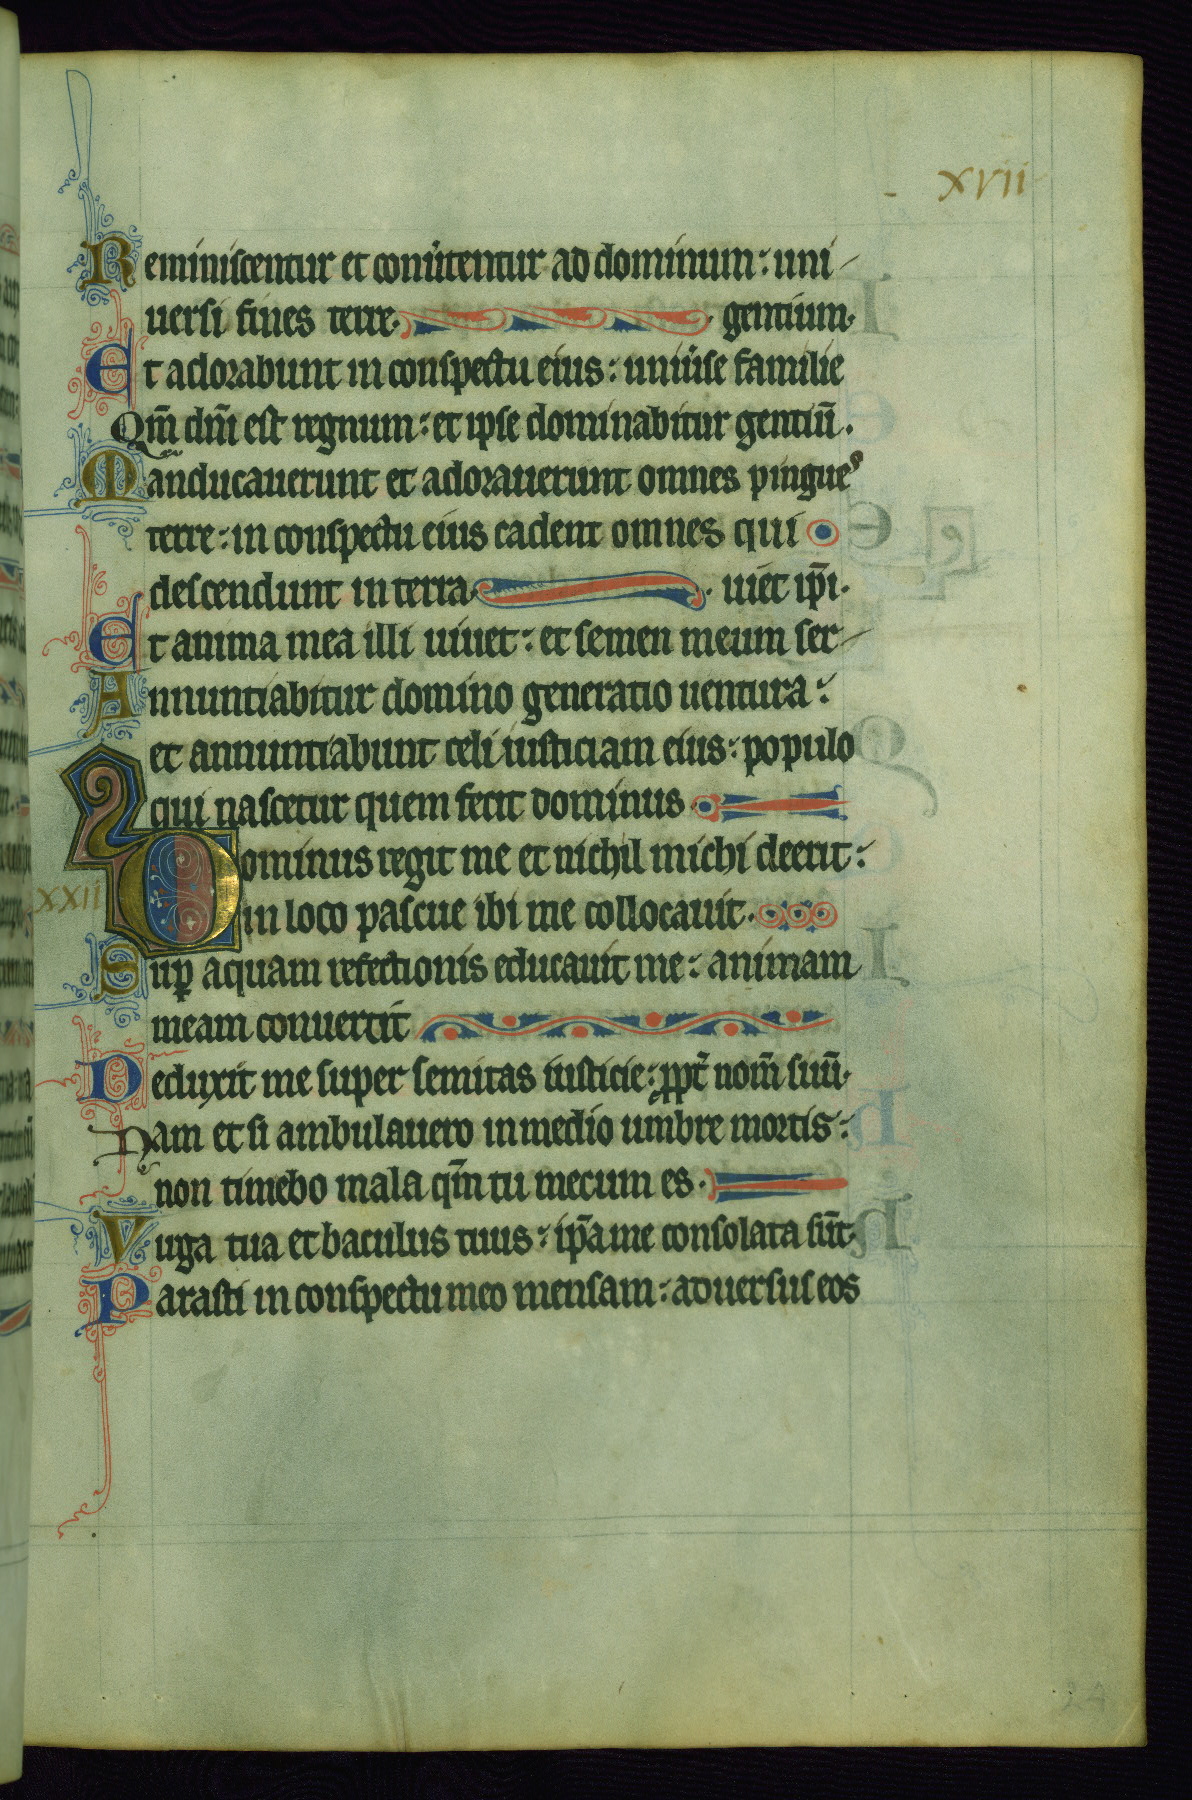 xvii
Reminiscentur et conũtentur ad dominum: uni
uersi fines terre. gentium.
Et adorabunt in conspectu eius: uniũse familie
Qm̃ dñi est regnum: et ipse dominabitur gentiũ.
Manducauerunt et adorauerunt omnes pingues
terre: in conspectu eius cadent omnes qui
descendunt in terra. uiet ip̃i.
Et anima mea illi uiuet: et semen meum ser
Annuntiabitur domino generatio uentura:
et annuntiabunt celi iusticiam eius: populo
qui nascetur quem fecit dominus.
xxii
Dominus regit me et nichil michi deerit:
in loco pascue ibi me collocauit.
Suꝑ aquam refectionis educauit me: animam
meam conuertit
Deduxit me super semitas iusticie: ꝓpt̃ nom̃ suũ.
Nam et si ambulauero in medio umbre mortis:
non timebo mala qm̃ tu mecum es.
Vuga tua et baculus tuus: ip̃a me consolata sũt.
Parasti in conspectu meo mensam: aduersus eos
24